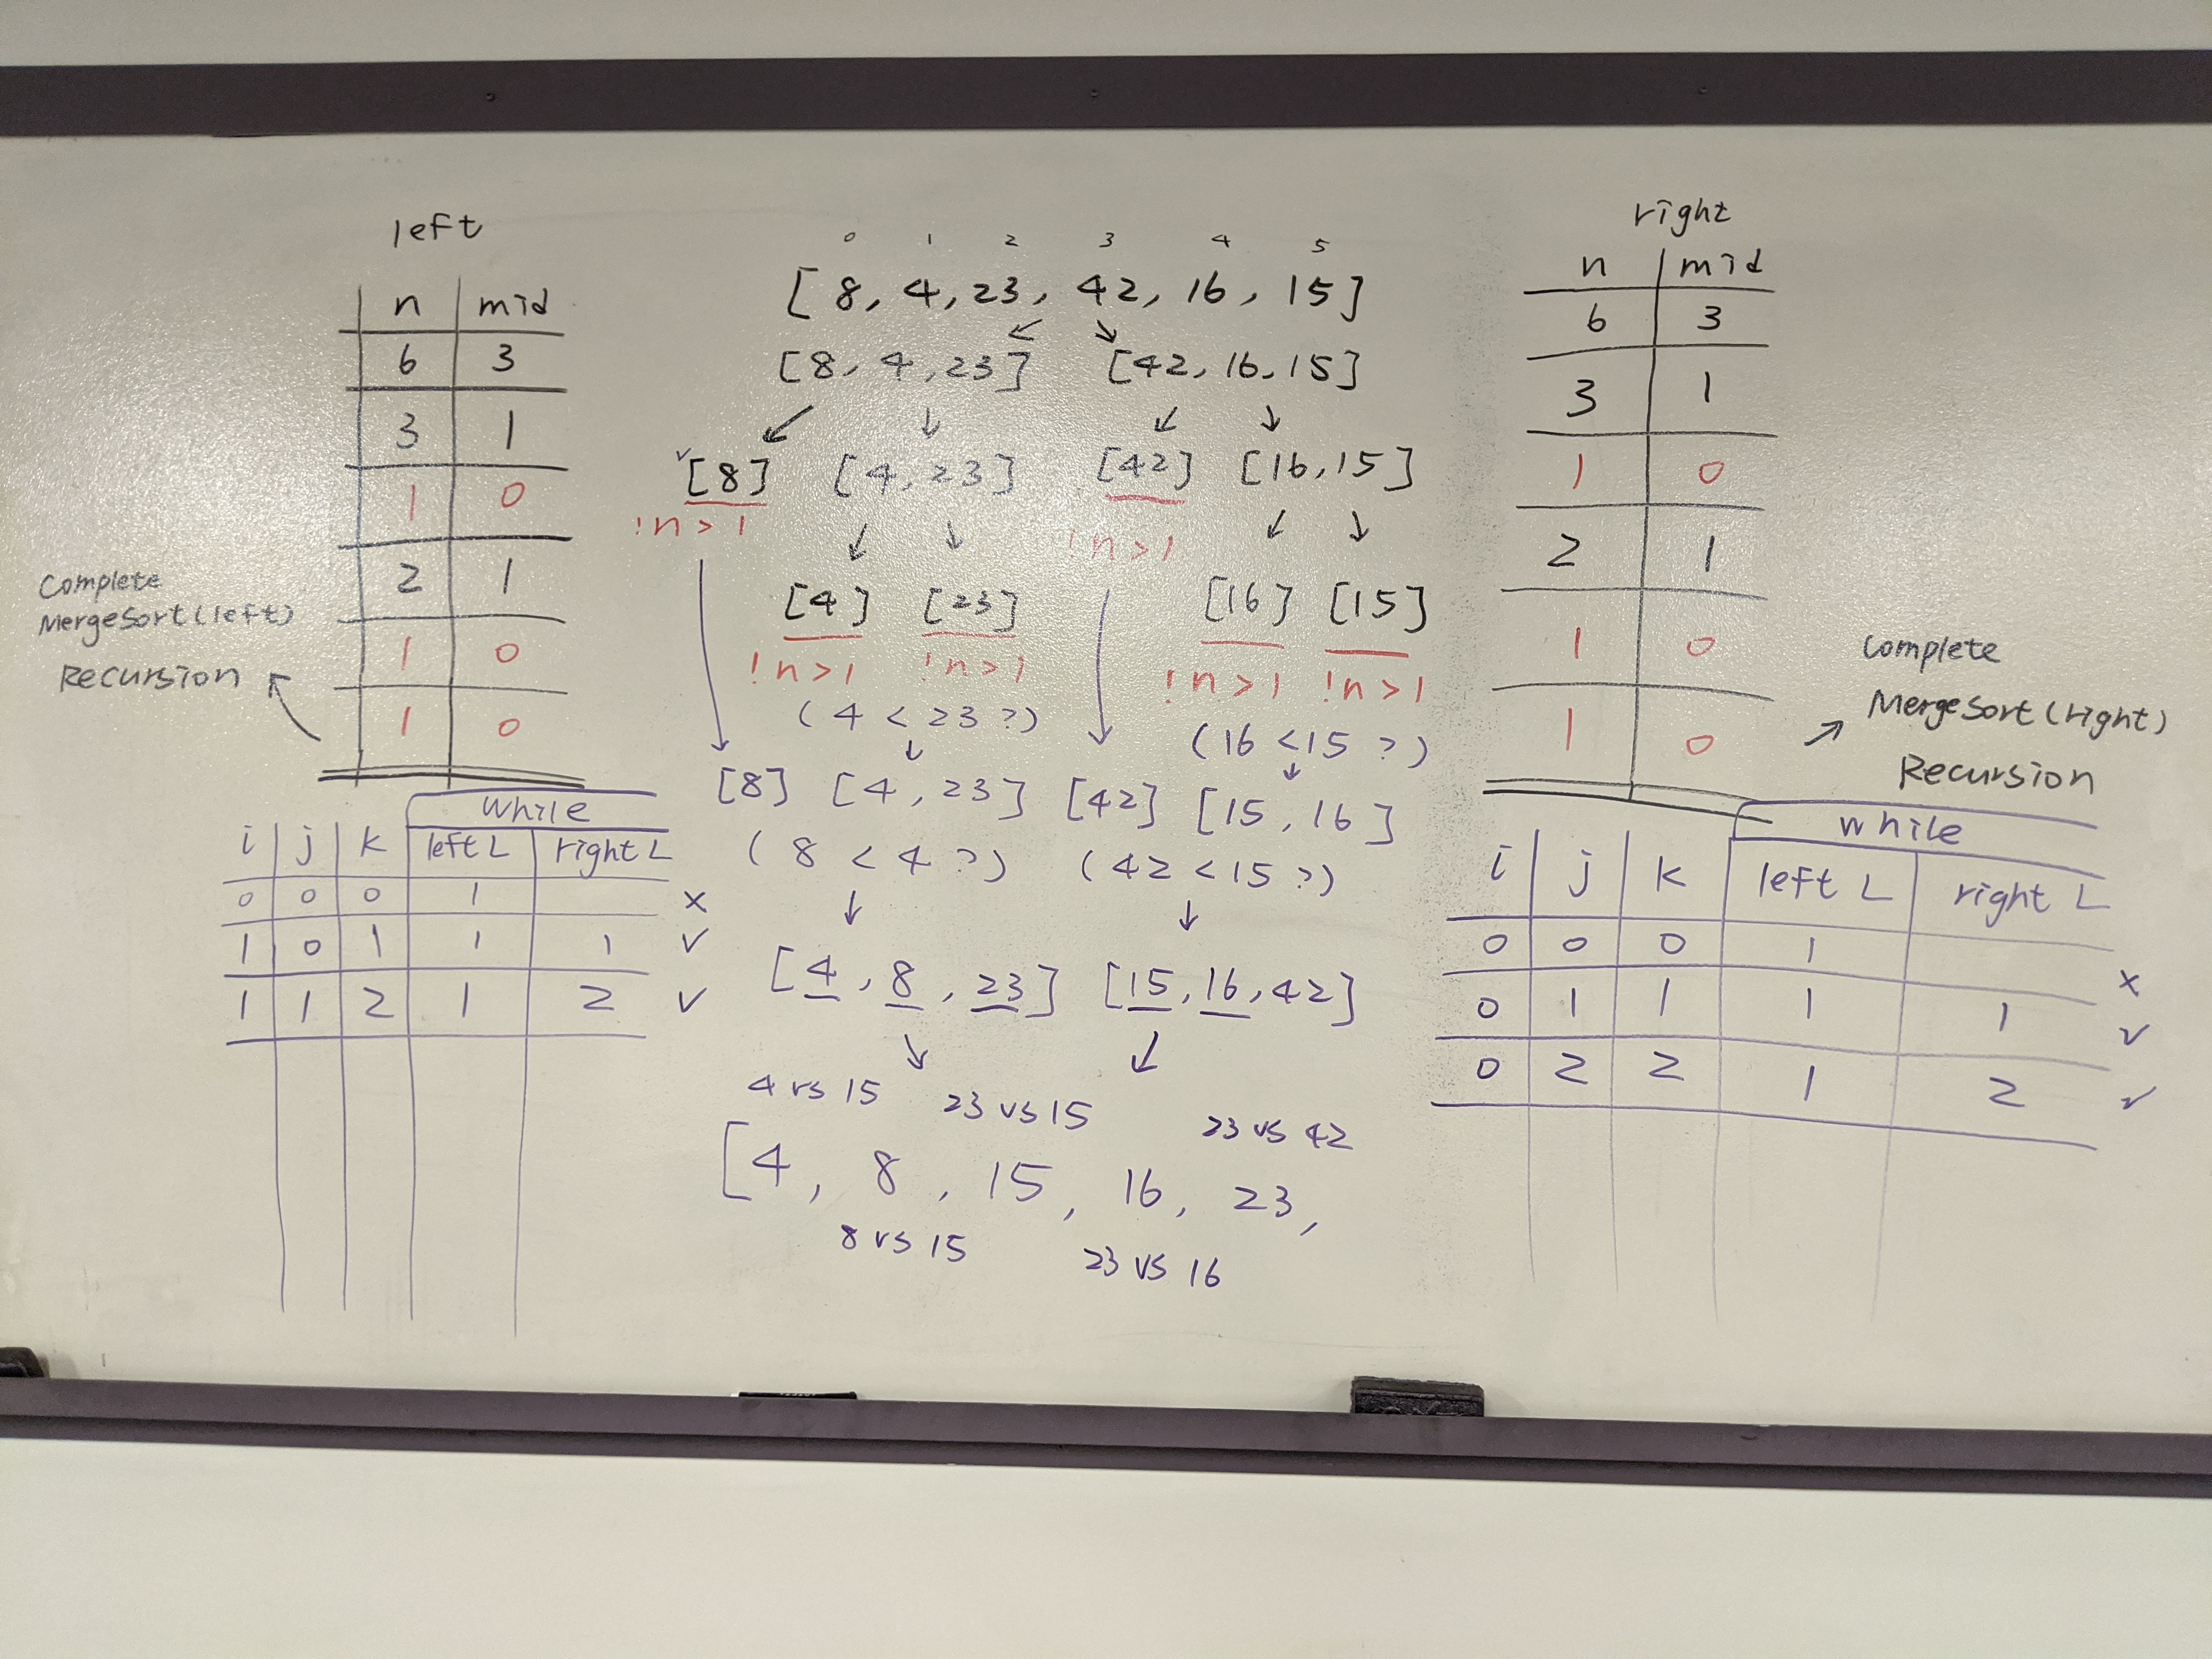 left
n mid
6 3
3 1
1 0
2 1
1 0
1 0
Complete
MergeSort(left)
Recursion
while
i j k left L right L
0 0 0 1 x
1 0 1 1 1 ✓
1 1 2 1 2 ✓
0 1 2 3 4 5
[8, 4, 23, 42, 16, 15]
[8, 4, 23] [42, 16, 15]
✓ [8] [4, 23] [42] [16, 15]
!n>1 !n>1
[4] [23] [16] [15]
!n>1 !n>1 !n>1 !n>1
(4 < 23 ?) (16 < 15 ?)
[8] [4, 23] [42] [15, 16]
(8 < 4 ?) (42 < 15 ?)
[4, 8, 23] [15, 16, 42]
4 vs 15 23 vs 15 23 vs 42
[4, 8, 15, 16, 23,
8 vs 15 23 vs 16
right
n mid
6 3
3 1
1 0
2 1
1 0
1 0
Complete
MergeSort(right)
Recursion
while
i j k left L right L
0 0 0 1 x
0 1 1 1 1 ✓
0 2 2 1 2 ✓